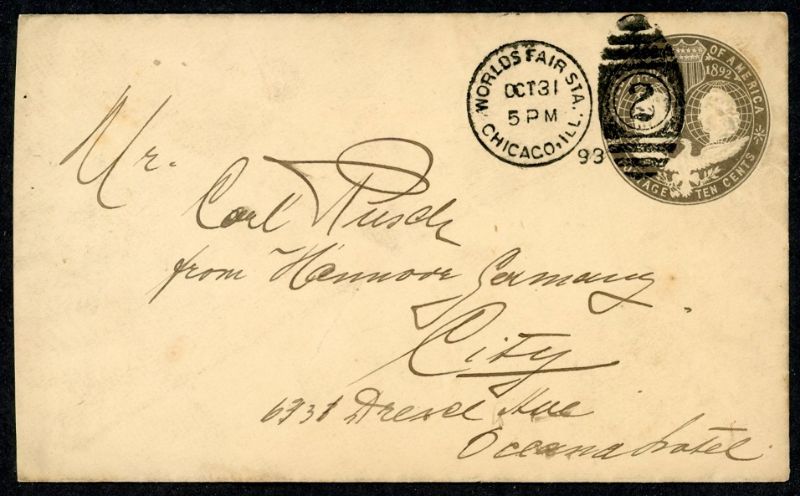 WORLDS FAIR STA.
OCT 31
5 PM
CHICAGO, ILL.
93
2
OF AMERICA
1892
TEN CENTS
Mr.
Carl Rusch
from Hannover Germany
City
Ave
Oceana hotel.